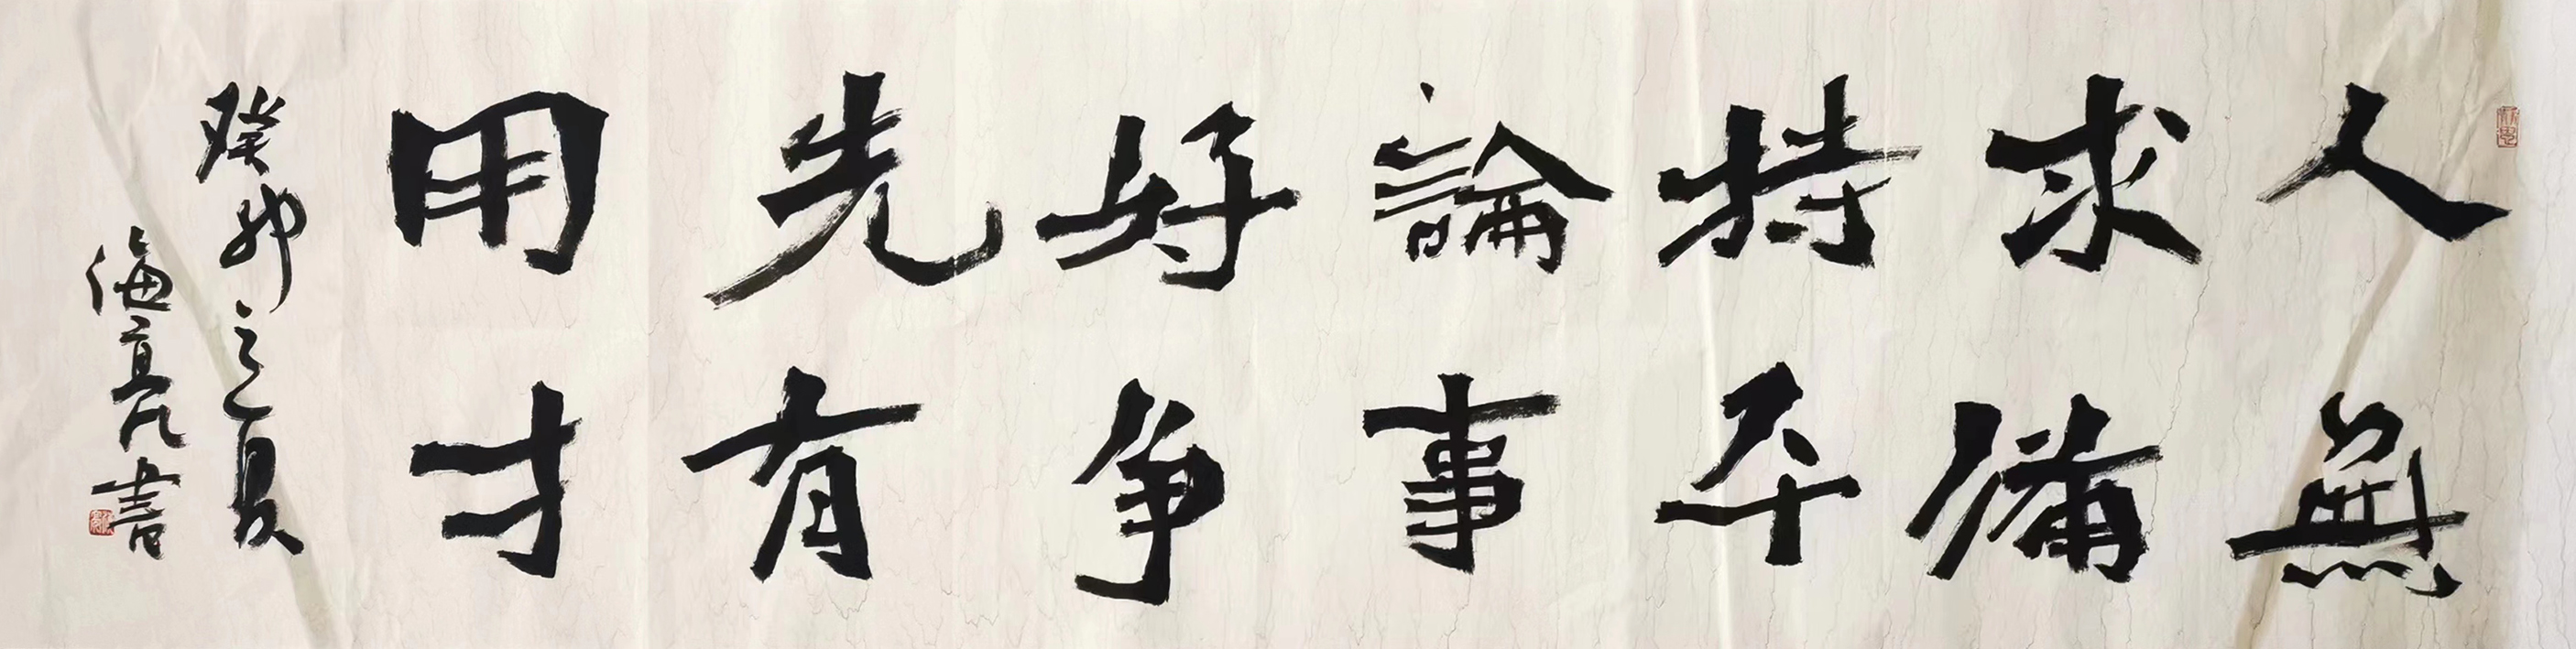 人無
求備
持平
論事
好争
先有
用才
癸卯之夏
海亮書